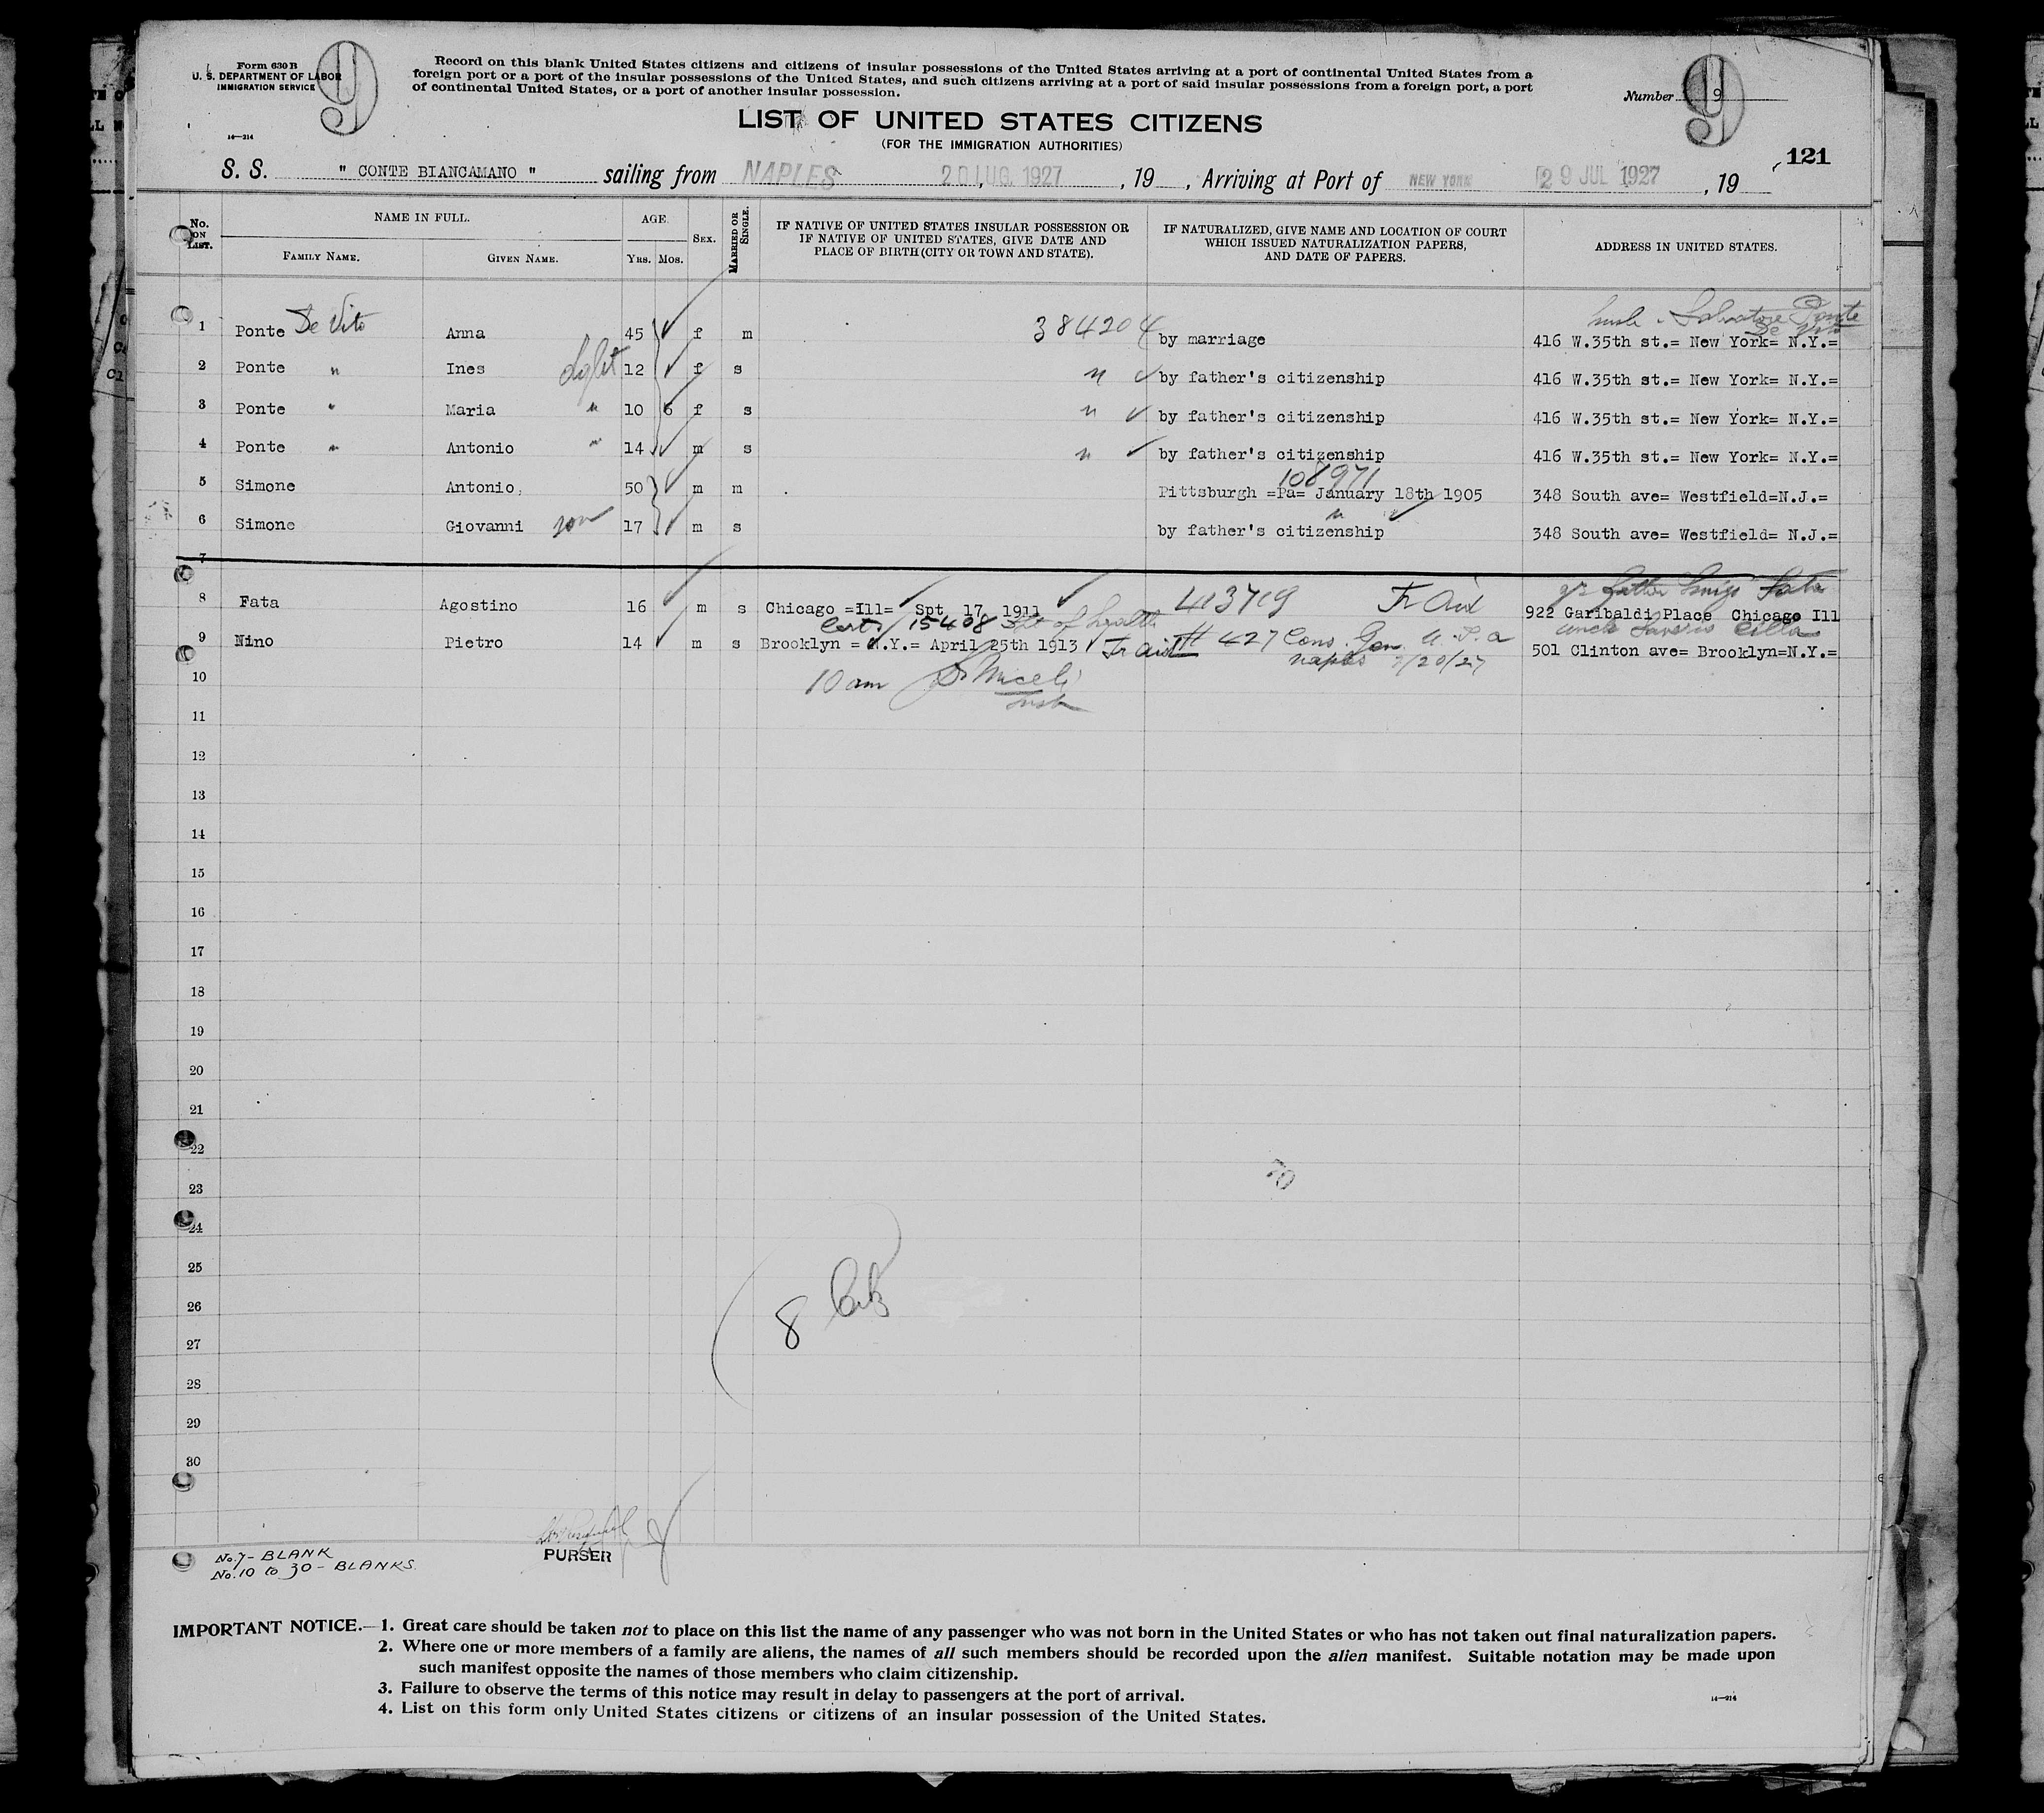 Form 630 B
U. S. DEPARTMENT OF LABOR
IMMIGRATION SERVICE
14—214
9
Record on this blank United States citizens and citizens of insular possessions of the United States arriving at a port of continental United States from a
foreign port or a port of the insular possessions of the United States, and such citizens arriving at a port of said insular possessions from a foreign port, a port
of continental United States, or a port of another insular possession.
Number 9
9
LIST OF UNITED STATES CITIZENS
(FOR THE IMMIGRATION AUTHORITIES)
121
S. S. " CONTE BIANCAMANO " sailing from NAPLES 20 LUG. 1927, 19 , Arriving at Port of NEW YORK 29 JUL 1927 , 19
No. ON LIST. NAME IN FULL. FAMILY NAME. GIVEN NAME. AGE. YRS. MOS. SEX. MARRIED OR SINGLE. IF NATIVE OF UNITED STATES INSULAR POSSESSION OR IF NATIVE OF UNITED STATES, GIVE DATE AND PLACE OF BIRTH (CITY OR TOWN AND STATE). IF NATURALIZED, GIVE NAME AND LOCATION OF COURT WHICH ISSUED NATURALIZATION PAPERS, AND DATE OF PAPERS. ADDRESS IN UNITED STATES.
Salvatore Ponte
De Vito
1 Ponte De Vito Anna 45 f m 384204 by marriage 416 W.35th st.= New York= N.Y.=
2 Ponte " Ines 12 f s " by father's citizenship 416 W.35th st.= New York= N.Y.=
3 Ponte " Maria " 10 6 f s " by father's citizenship 416 W.35th st.= New York= N.Y.=
4 Ponte " Antonio " 14 m s " by father's citizenship 416 W.35th st.= New York= N.Y.=
108971
5 Simone Antonio 50 m m Pittsburgh =Pa= January 18th 1905 348 South ave= Westfield=N.J.=
6 Simone Giovanni son 17 m s " by father's citizenship 348 South ave= Westfield= N.J.=
7
father Luigi Fata
8 Fata Agostino 16 m s Chicago =Ill= Spt 17 1911 413719 922 Garibaldi Place Chicago Ill
Cert 15408 of health
uncle
9 Nino Pietro 14 m s Brooklyn = N.Y.= April 25th 1913 # 427 Cons. Gen. U.S.A 501 Clinton ave= Brooklyn=N.Y.=
Naples 7/20/27
10 10 am
11
12
13
14
15
16
17
18
19
20
21
22
23
24
25
26
27
28
29
30
8
PURSER
No.7- BLANK
No.10 to 30- BLANKS.
IMPORTANT NOTICE.—1. Great care should be taken not to place on this list the name of any passenger who was not born in the United States or who has not taken out final naturalization papers.
2. Where one or more members of a family are aliens, the names of all such members should be recorded upon the alien manifest. Suitable notation may be made upon
such manifest opposite the names of those members who claim citizenship.
3. Failure to observe the terms of this notice may result in delay to passengers at the port of arrival.
4. List on this form only United States citizens or citizens of an insular possession of the United States.
14—214